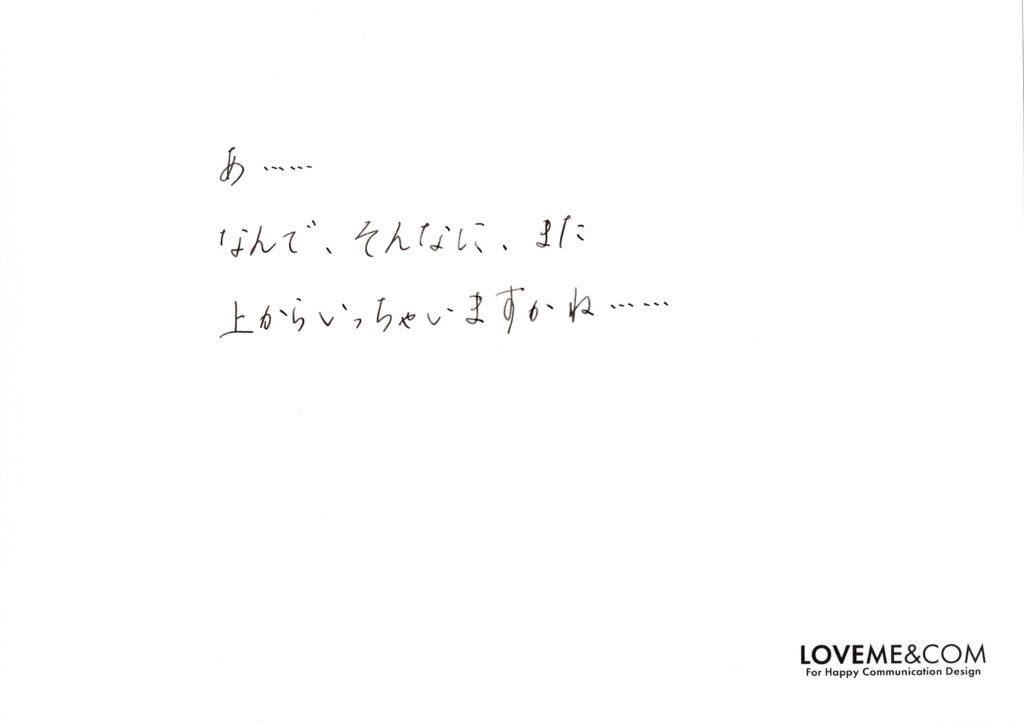 あ……
なんで、そんなに、また
上からいっちゃいますかね……
LOVEME&COM
For Happy Communication Design